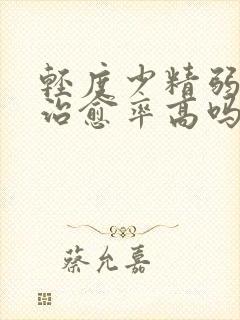 轻度少精弱
治愈率高吗
蔡允嘉